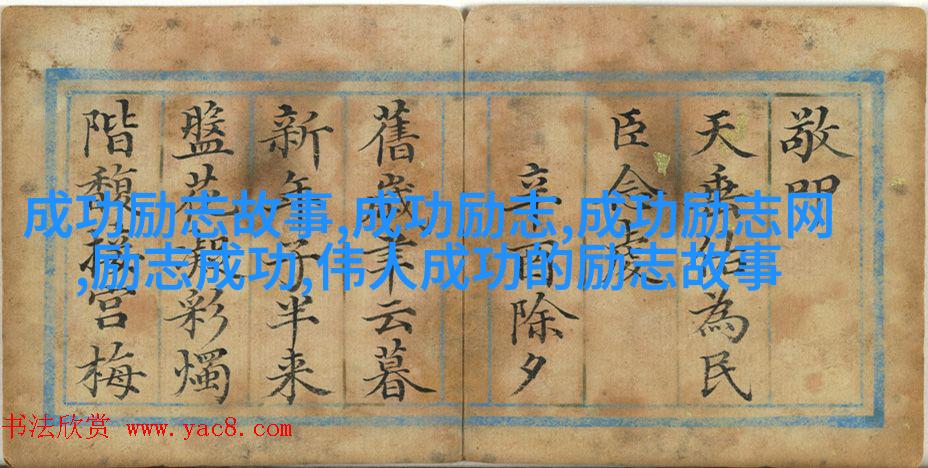 敬
天佑為民
臣
辛酉除夕
舊歲云暮
新年子半来
盤花彩燭
階馥宮梅
成功励志故事,成功励志,成功励志网
,励志成功,伟人成功的励志故事
书法欣赏 www.yac8.com